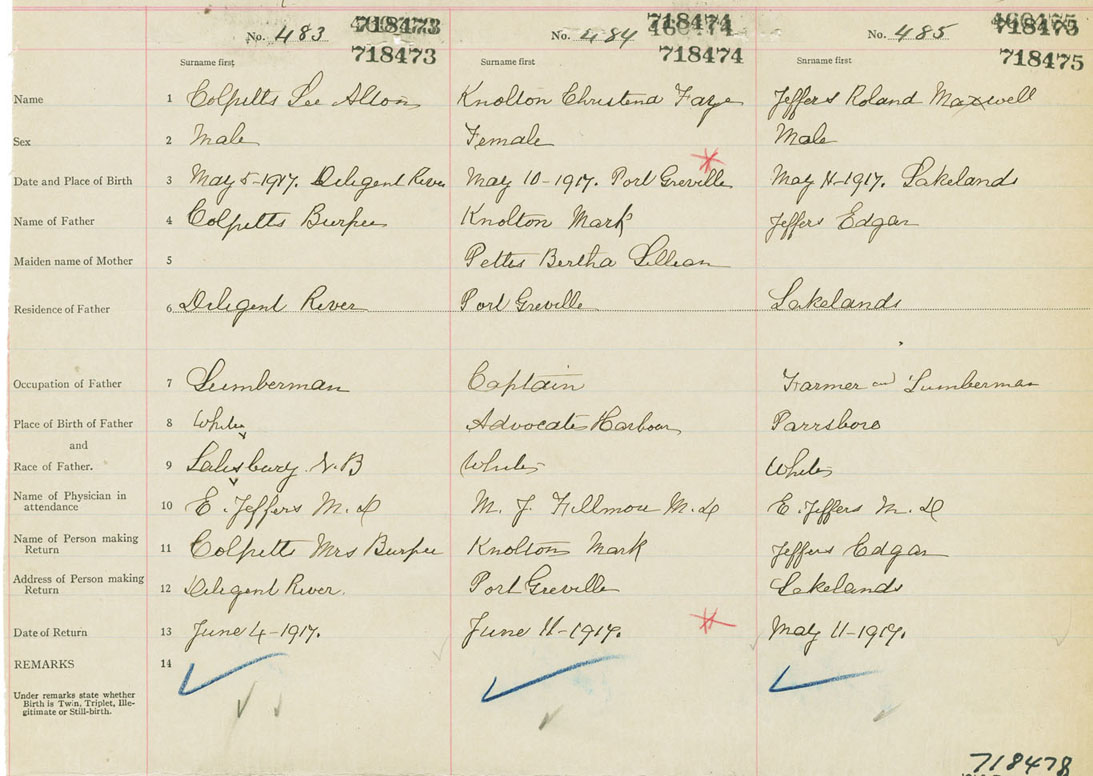 No. 483 718473 No. 484 718474 No. 485 718475
718473 718474 718475
Surname first Surname first Surname first
Name 1 Colpitts Lee Alton Knolton Christena Faye Jeffers Roland Maxwell
Sex 2 Male Female Male
Date and Place of Birth 3 May 5-1917. Diligent River May 10-1917. Port Greville May 4-1917. Lakelands
Name of Father 4 Colpitts Burpee Knolton Mark Jeffers Edgar
Maiden name of Mother 5 Pettis Bertha Lillian
Residence of Father 6 Diligent River Port Greville Lakelands
Occupation of Father 7 Lumberman Captain Farmer and Lumberman
Place of Birth of Father 8 White Advocate Harbour Parrsboro
and
Race of Father. 9 Salisbury N.B White White
Name of Physician in
attendance 10 E. Jeffers M.D M. J. Fillmore M.D E. Jeffers M.D
Name of Person making
Return 11 Colpitts Mrs Burpee Knolton Mark Jeffers Edgar
Address of Person making
Return 12 Diligent River. Port Greville Lakelands
Date of Return 13 June 4-1917. June 11-1917. May 11-1917.
REMARKS 14
Under remarks state whether
Birth is Twin, Triplet, Ille-
gitimate or Still-birth.
718478